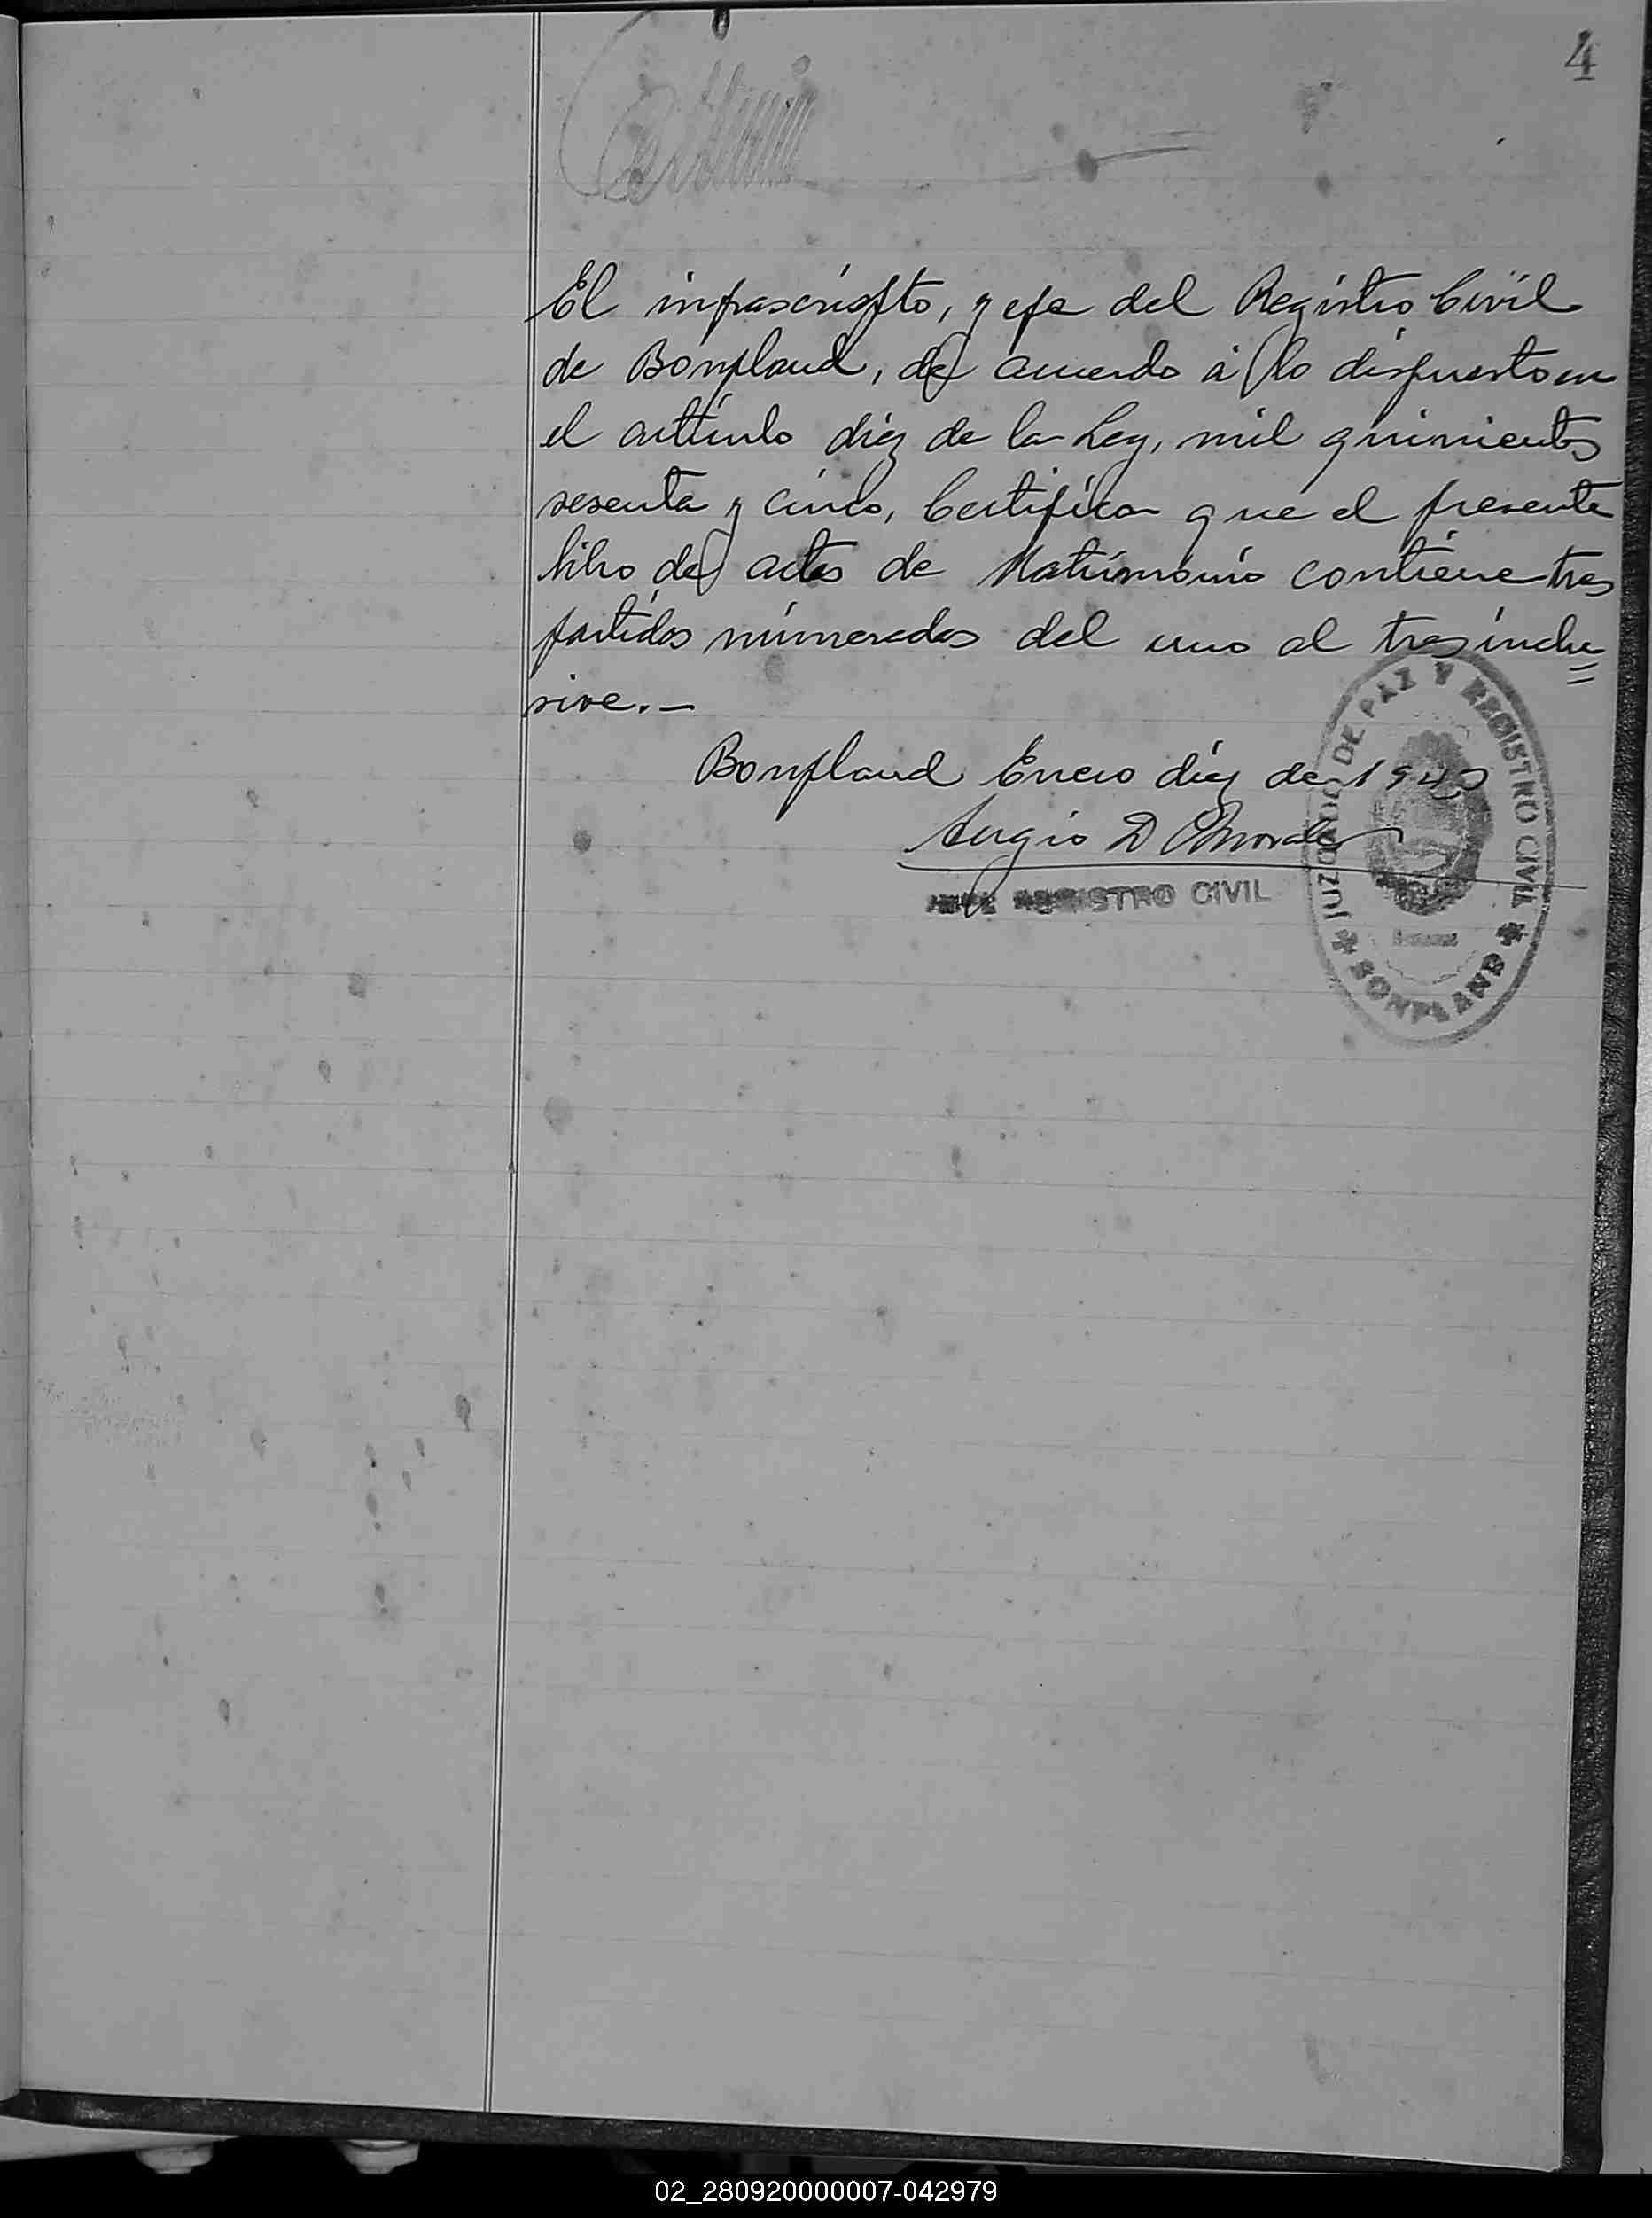 4
El infrascrispto, yefe del Registro Civil
de Bonpland, de acuerdo á lo dispuesto en
el artículo diez de la Ley, mil quinientos
sesenta y cinco, Certifica que el presente
libro de actas de Matrimonio contiene tres
partidas numeradas del uno al tres inclu=
sive.—
Bonpland Enero diez de 194
Sergio D Morales
JEFE REGISTRO CIVIL
JUZGADO DE PAZ Y REGISTRO CIVIL
BONPLAND
02_280920000007-042979